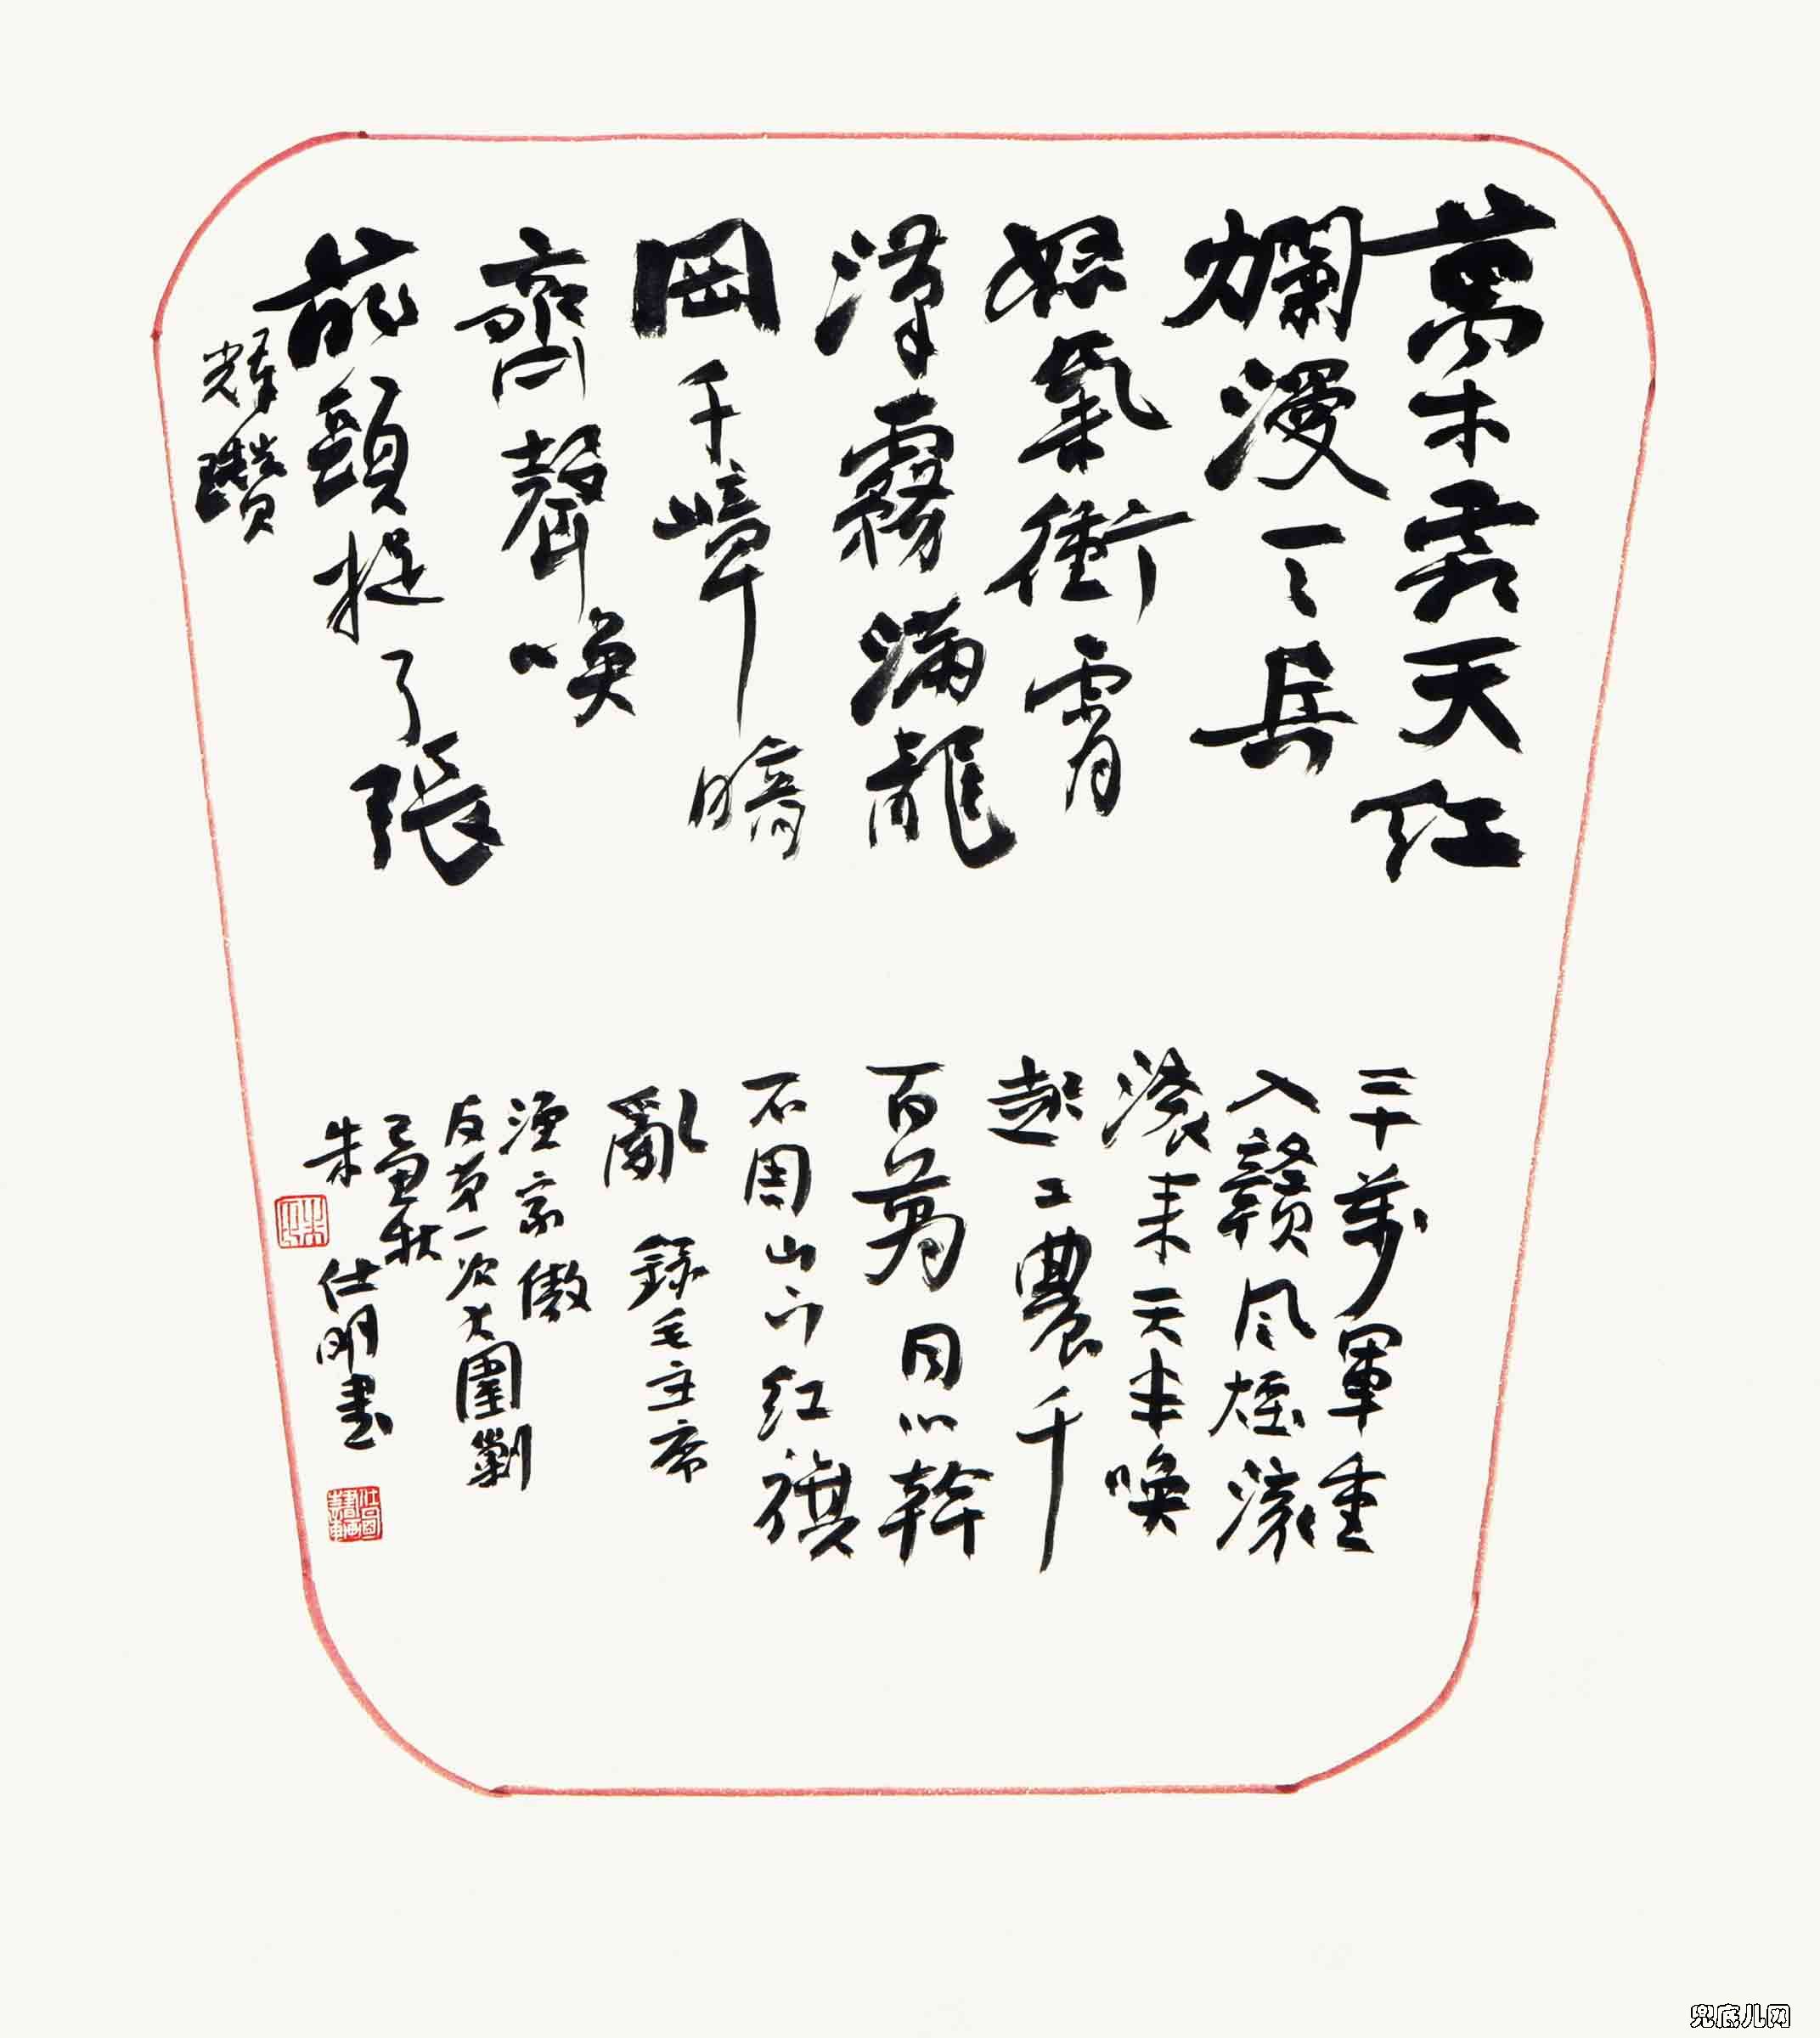 萬木霜天红
爛漫天兵
怒氣衝霄
漢霧滿龍
岡千嶂暗
齊聲喚
前頭捉了張
輝瓚
三十萬軍重
入赣风煙滚
滚来天半唤
起工農千
百萬同心幹
不周山下红旗
亂 録毛主席
渔家傲
反第一次大圍剿
己丑秋
朱仕明書
兜底儿网